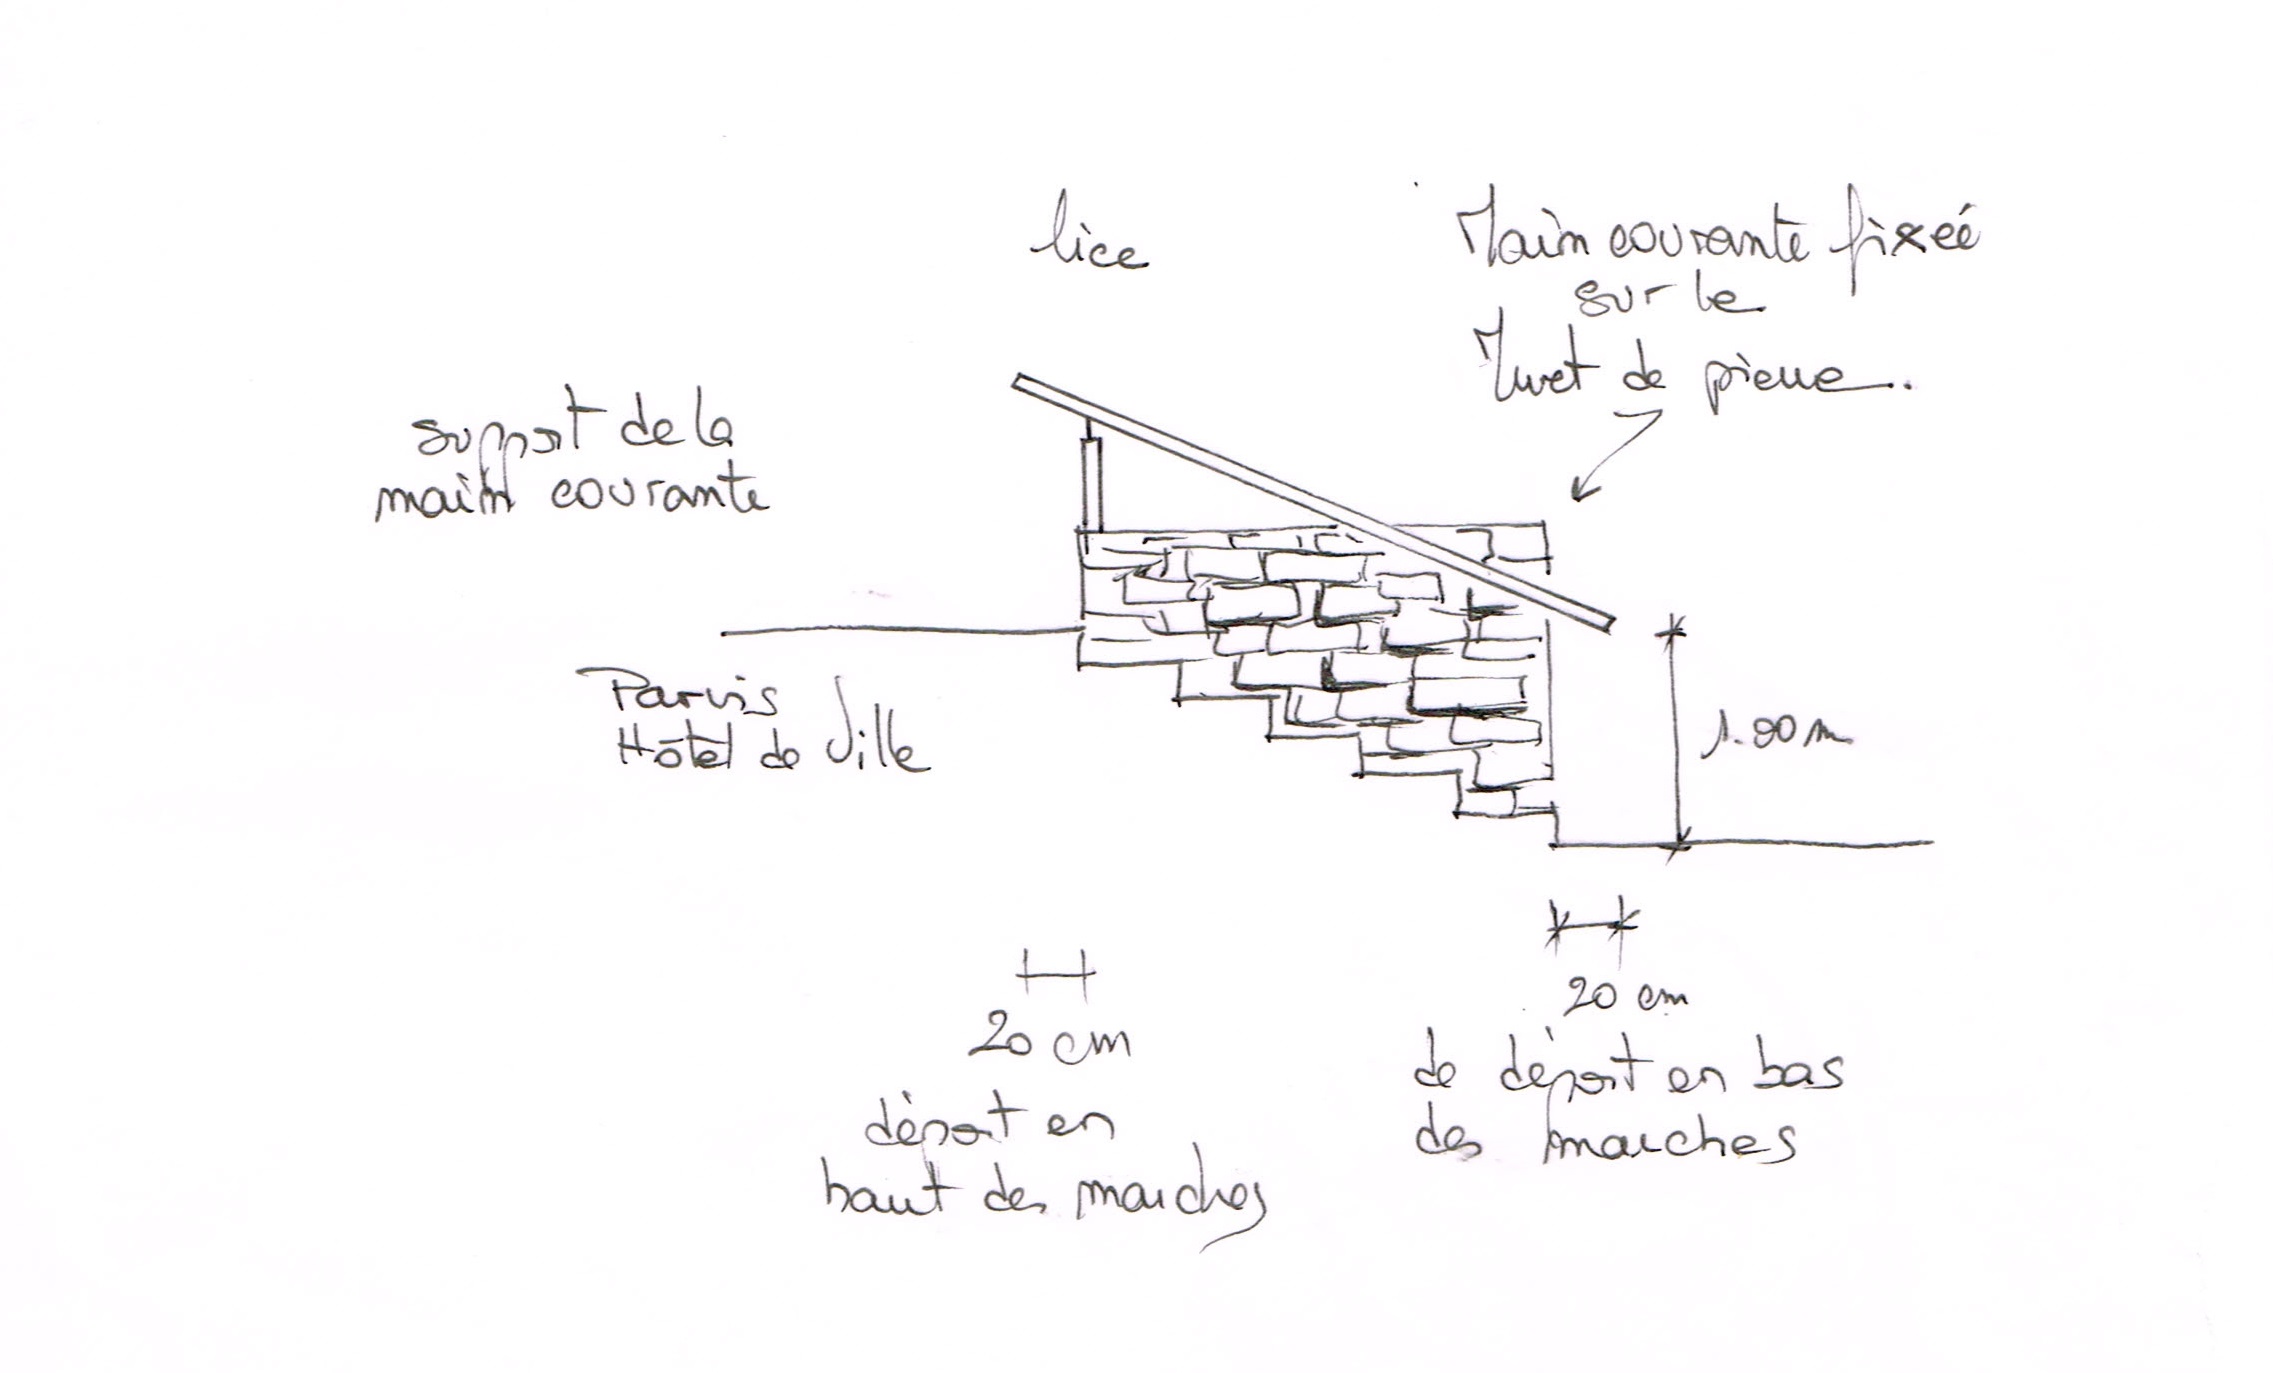 lice
Main courante fixée
sur le
Muret de pierre.
support de la
main courante
Parvis
Hôtel de Ville
1.00 m
20 cm
déport en
haut des marches
20 cm
de déport en bas
des marches